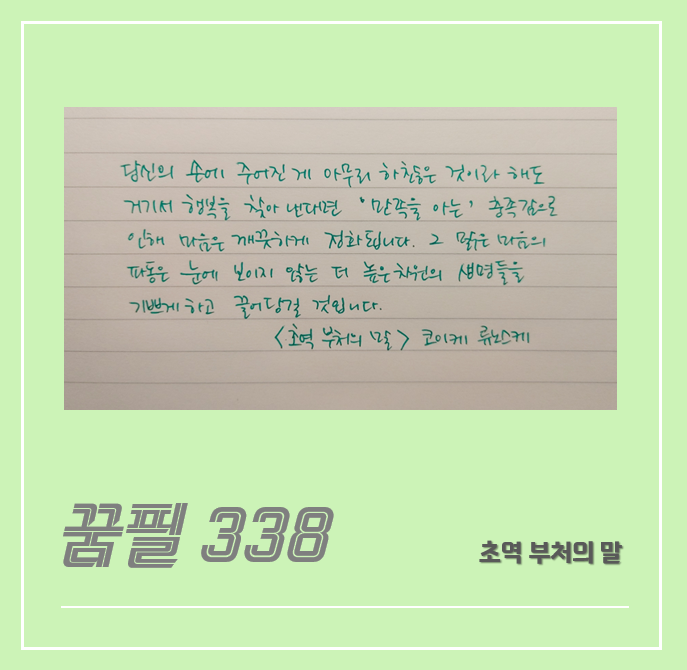 당신의 손에 주어진 게 아무리 하찮은 것이라 해도
거기서 행복을 찾아 낸다면 '만족을 아는' 충족감으로
인해 마음은 깨끗하게 정화됩니다. 그 맑은 마음의
파동은 눈에 보이지 않는 더 높은차원의 생명들을
기쁘게 하고 끌어당길 것입니다.
<초역 부처의 말> 코이케 류노스케
꿈필 338
초역 부처의 말